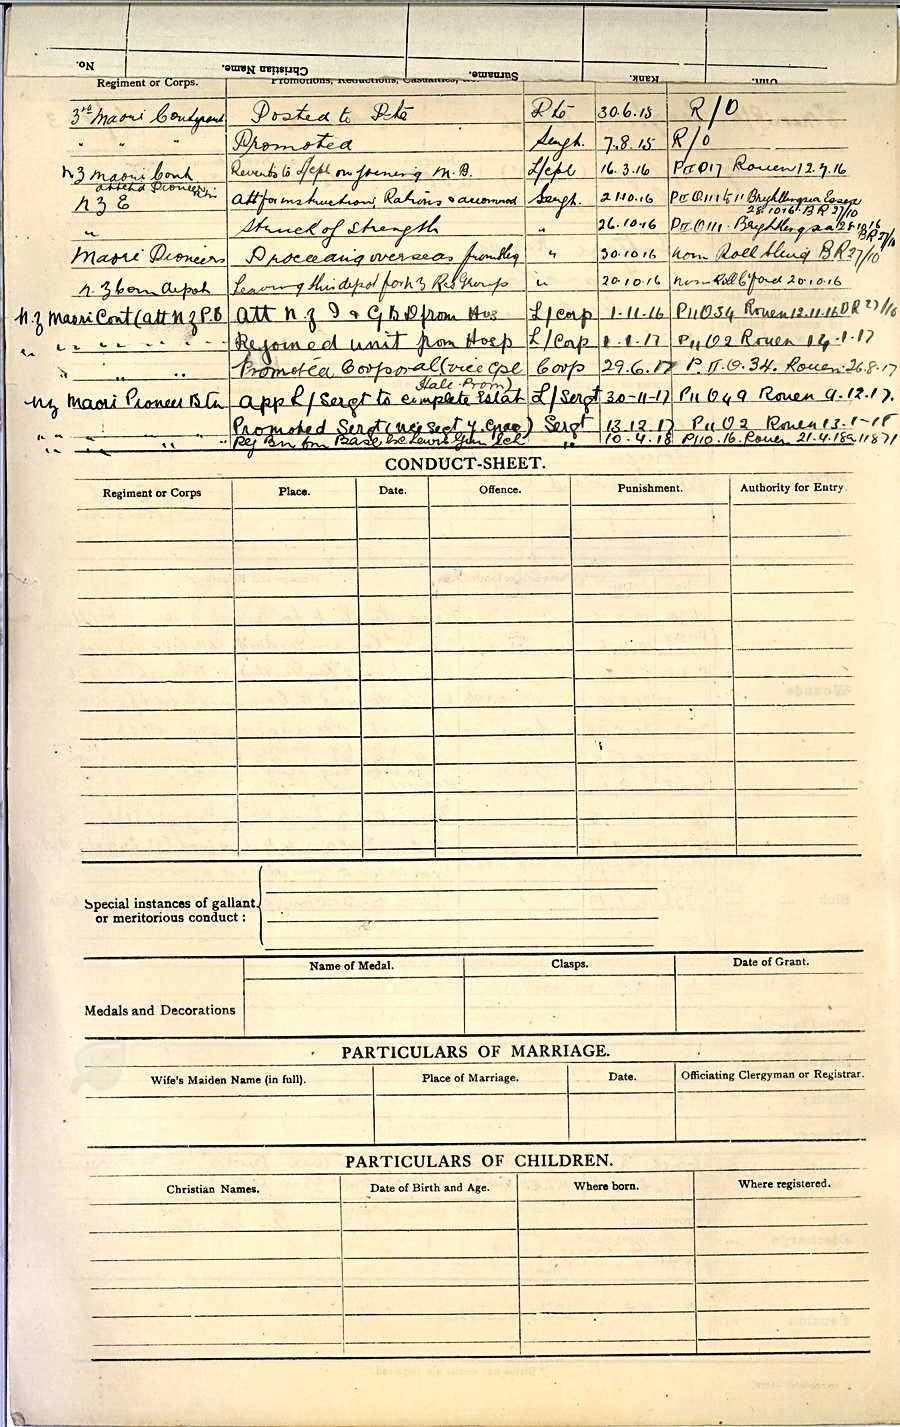 No. Christian Name. Surname. Rank. Unit.
Regiment or Corps. Promotions, Reductions, Casualties,
3rd Maori Contgent Posted to Pte Pte 30.6.15 R/O
" " " Promoted Sergt. 7.8.15 R/O
N Z Maori Cont Reverts to L/cpl on joining M.B. L/cpl 16.3.16 Pt II O 17 Rouen 12.7.16
attchd Pioneer Btn
N Z E Att for instruction, Rations & accomod Sergt. 21.10.16 Pt II O 111 Brightlingsea Essex
28.10.16 BR 27/10
" Struck of strength " 26.10.16 Pt II O 111 Brightlingsea 28.10.16
BR 27/10
Maori Pioneers Proceeding overseas from " 30.10.16 Nom Roll Sling BR 27/10
N.Z Com depot Leaving this depot for N Z Res Group " 20.10.16 Nom Roll C'ford 20.10.16
N.Z Maori Cont (att N Z P.B Att N.Z I & G B D from Hos L/Corp 1.11.16 P II O 54 Rouen 12.11.16 DR 27/16
" " " " " Rejoined unit from Hosp L/Corp 1.1.17 P II O 2 Rouen 14.1.17
" " " Promoted Corporal (vice Cpl Corp 29.6.17 P.II.O.34. Rouen. 26.8.17
Hale. Prom)
NZ Maori Pioneer Btn App L/Sergt to complete Estab L/Sergt 30-11-17 P II O 49 Rouen 9.12.17.
" " " " Promoted Sergt (vice Sergt ) Sergt 13.12.17 P II O 2 Rouen 13.1.18
" " " " Rej Bn fm Base Lewis Gun Scl " 10.4.18 P II O.16. Rouen 21.4.18
CONDUCT-SHEET.
Regiment or Corps Place. Date. Offence. Punishment. Authority for Entry
Special instances of gallant
or meritorious conduct :
Name of Medal. Clasps. Date of Grant.
Medals and Decorations
PARTICULARS OF MARRIAGE.
Wife's Maiden Name (in full). Place of Marriage. Date. Officiating Clergyman or Registrar.
PARTICULARS OF CHILDREN.
Christian Names. Date of Birth and Age. Where born. Where registered.